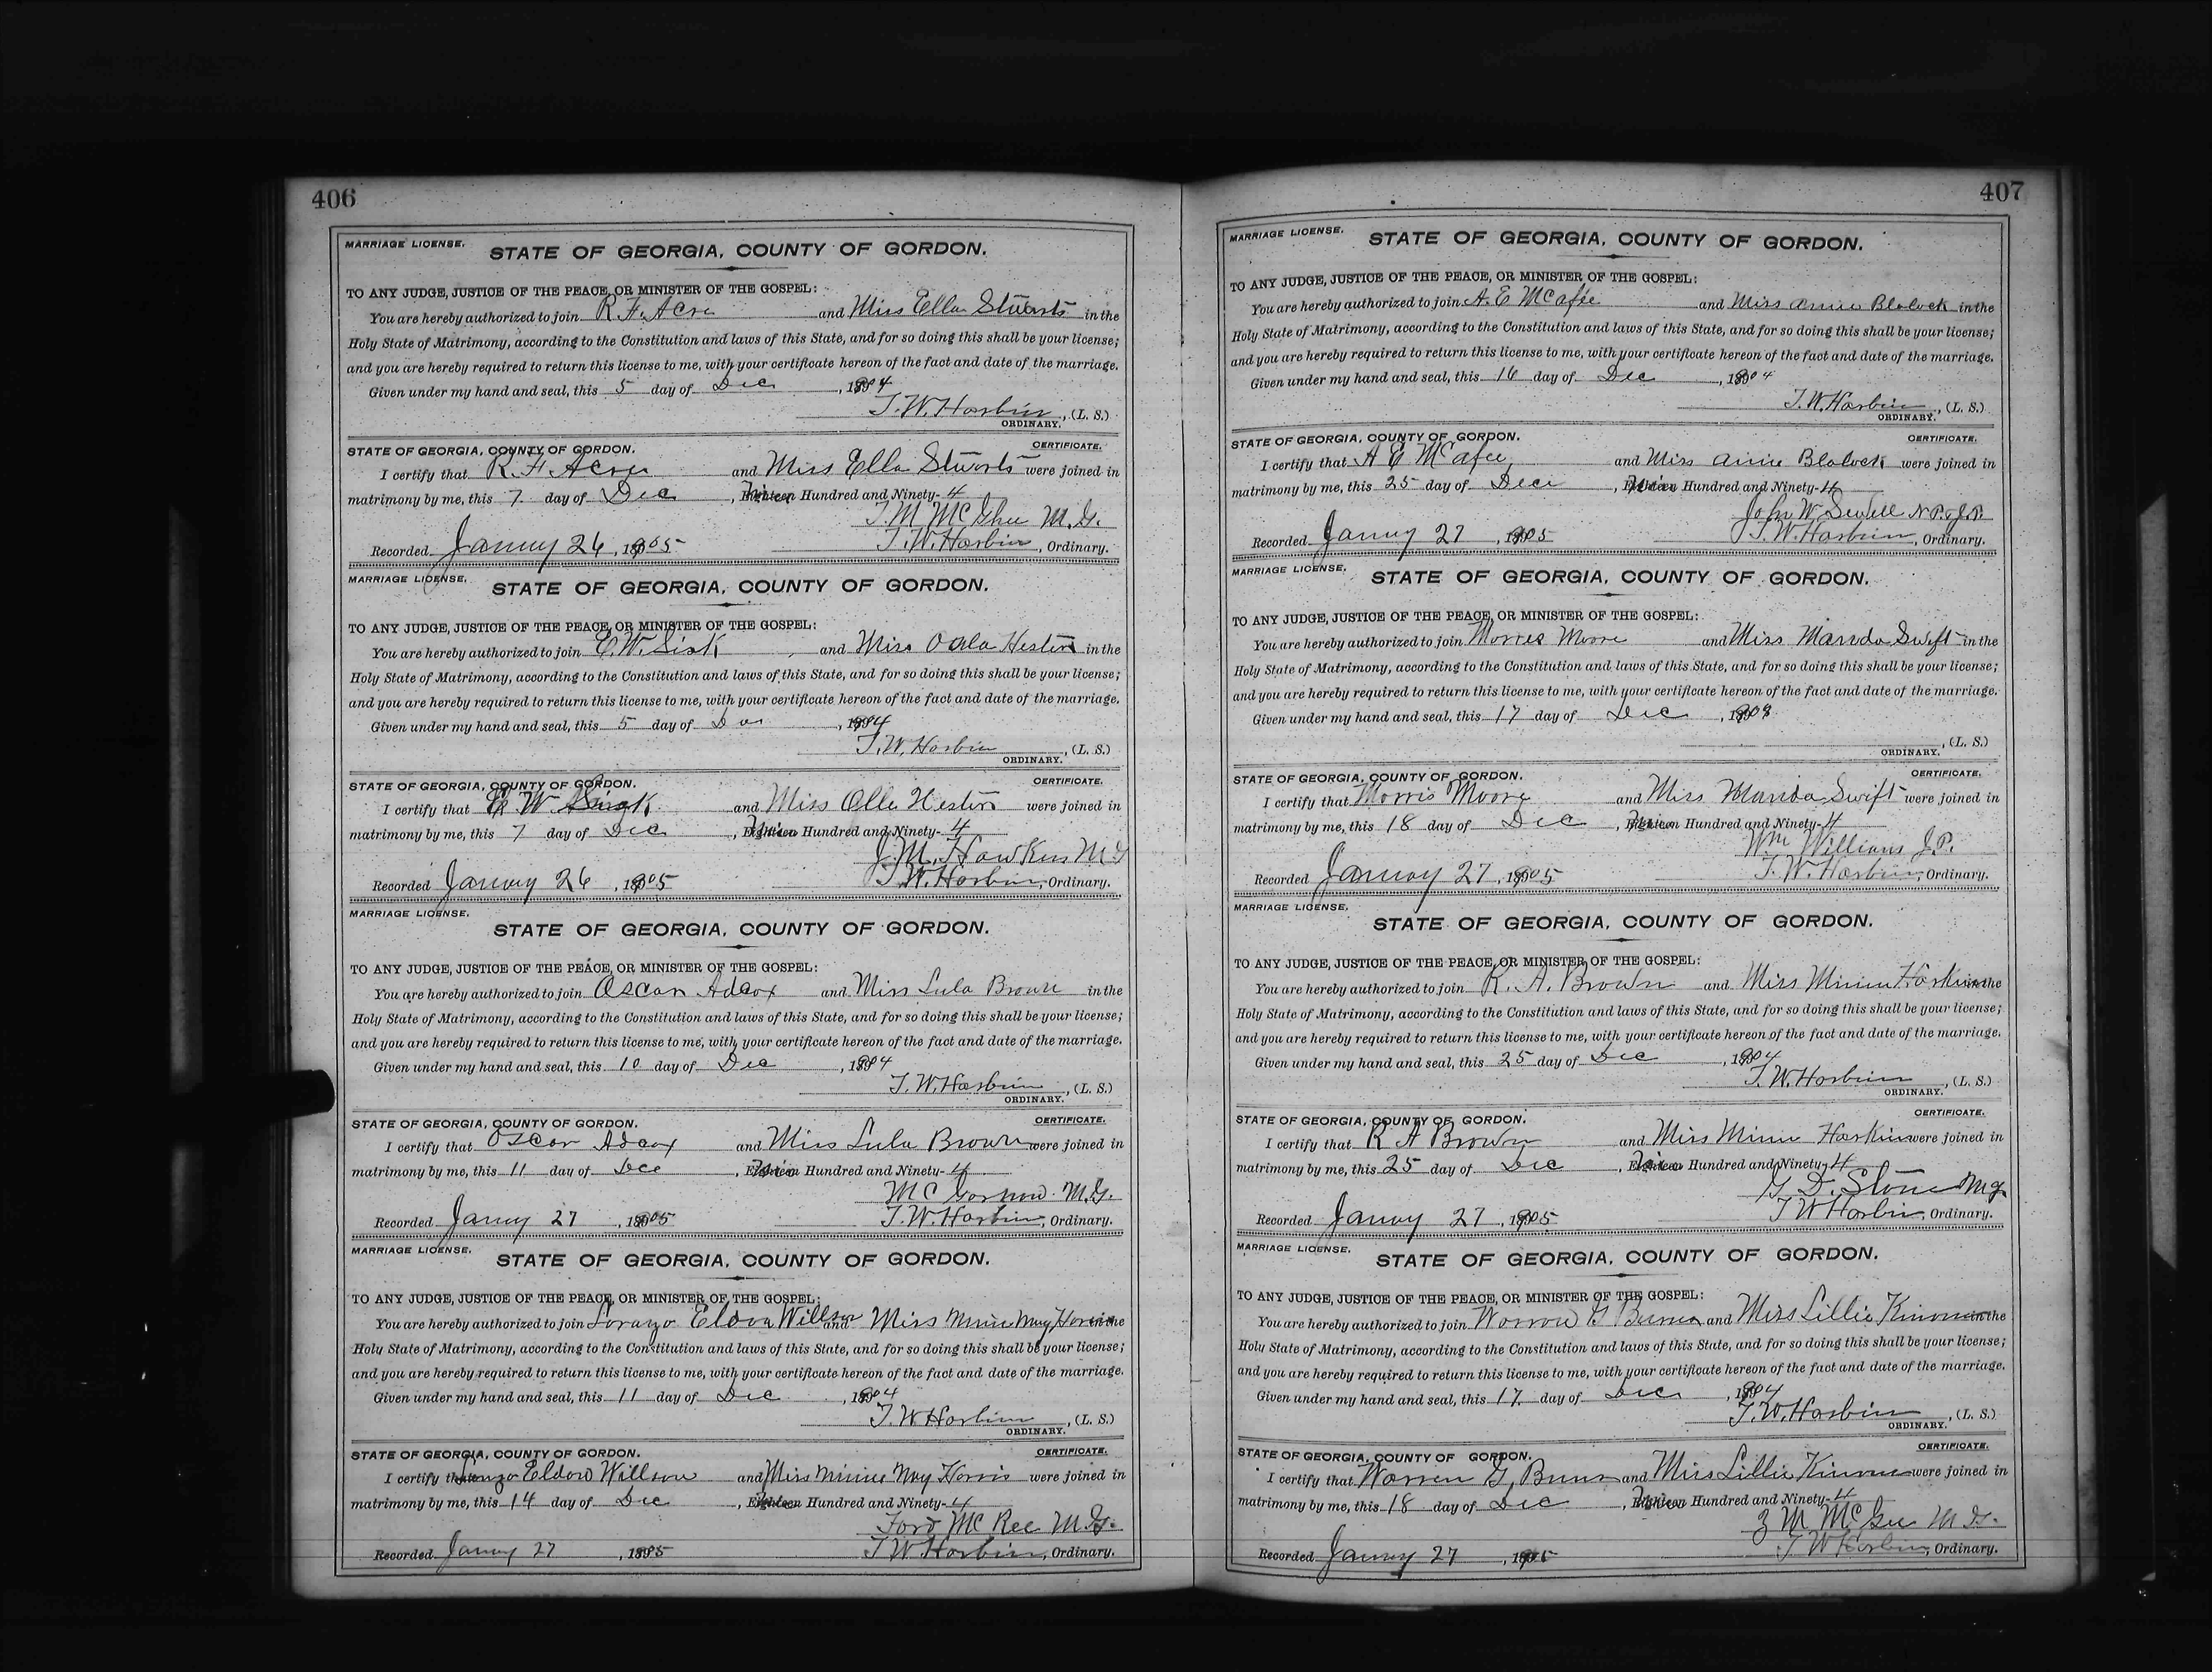 406
MARRIAGE LICENSE.
STATE OF GEORGIA, COUNTY OF GORDON.
TO ANY JUDGE, JUSTICE OF THE PEACE, OR MINISTER OF THE GOSPEL:
You are hereby authorized to join R. F. Acre and Miss Ella Stuarts in the
Holy State of Matrimony, according to the Constitution and laws of this State, and for so doing this shall be your license;
and you are hereby required to return this license to me, with your certificate hereon of the fact and date of the marriage.
Given under my hand and seal, this 5 day of Dec, 1904
T. W. Harbin, (L. S.)
ORDINARY.
STATE OF GEORGIA, COUNTY OF GORDON. CERTIFICATE.
I certify that R. F. Acree and Miss Ella Stuarts were joined in
matrimony by me, this 7 day of Dec, Hundred and Ninety-4
T. M. McGhee M.G.
Recorded Januy 26, 1905 T. W. Harbin, Ordinary.
MARRIAGE LICENSE.
STATE OF GEORGIA, COUNTY OF GORDON.
TO ANY JUDGE, JUSTICE OF THE PEACE, OR MINISTER OF THE GOSPEL:
You are hereby authorized to join E. W. Sisk and Miss Hester in the
Holy State of Matrimony, according to the Constitution and laws of this State, and for so doing this shall be your license;
and you are hereby required to return this license to me, with your certificate hereon of the fact and date of the marriage.
Given under my hand and seal, this 5 day of, 1904
T. W. Harbin, (L. S.)
ORDINARY.
STATE OF GEORGIA, COUNTY OF GORDON. CERTIFICATE.
I certify that W and Miss Olla Hester were joined in
matrimony by me, this 7 day of Dec, Hundred and Ninety-4
J. M. Hawkins M G
Recorded Januy 26, 1905 T. W. Harbin, Ordinary.
MARRIAGE LICENSE.
STATE OF GEORGIA, COUNTY OF GORDON.
TO ANY JUDGE, JUSTICE OF THE PEACE, OR MINISTER OF THE GOSPEL:
You are hereby authorized to join Oscar Adcox and Miss Lula Brown in the
Holy State of Matrimony, according to the Constitution and laws of this State, and for so doing this shall be your license;
and you are hereby required to return this license to me, with your certificate hereon of the fact and date of the marriage.
Given under my hand and seal, this 10 day of Dec, 1904
T. W. Harbin, (L. S.)
ORDINARY.
STATE OF GEORGIA, COUNTY OF GORDON. CERTIFICATE.
I certify that Oscar Adcox and Miss Lula Brown were joined in
matrimony by me, this 11 day of Dec, Hundred and Ninety-4
M.G.
Recorded Januy 27, 1905 T. W. Harbin, Ordinary.
MARRIAGE LICENSE.
STATE OF GEORGIA, COUNTY OF GORDON.
TO ANY JUDGE, JUSTICE OF THE PEACE, OR MINISTER OF THE GOSPEL:
You are hereby authorized to join Lorenzo Eldon Willson and Miss Minnie May Harris in the
Holy State of Matrimony, according to the Constitution and laws of this State, and for so doing this shall be your license;
and you are hereby required to return this license to me, with your certificate hereon of the fact and date of the marriage.
Given under my hand and seal, this 11 day of Dec, 1904
T. W. Harbin, (L. S.)
ORDINARY.
STATE OF GEORGIA, COUNTY OF GORDON. CERTIFICATE.
I certify that Lorenzo Eldon Willson and Miss Minnie May Harris were joined in
matrimony by me, this 14 day of Dec, Hundred and Ninety-4
Ford McRee M.G.
Recorded Januy 27, 1905 T W Harbin, Ordinary.
407
MARRIAGE LICENSE.
STATE OF GEORGIA, COUNTY OF GORDON.
TO ANY JUDGE, JUSTICE OF THE PEACE, OR MINISTER OF THE GOSPEL:
You are hereby authorized to join A. E McAfee and Miss Annie Blalock in the
Holy State of Matrimony, according to the Constitution and laws of this State, and for so doing this shall be your license;
and you are hereby required to return this license to me, with your certificate hereon of the fact and date of the marriage.
Given under my hand and seal, this 16 day of Dec, 1904
T. W. Harbin, (L. S.)
ORDINARY.
STATE OF GEORGIA, COUNTY OF GORDON. CERTIFICATE.
I certify that A E McAfee and Miss Annie Blalock were joined in
matrimony by me, this 25 day of Dec, Hundred and Ninety-4
John W. Sewell N.P. & J.P.
Recorded Januy 27, 1905 T. W. Harbin, Ordinary.
MARRIAGE LICENSE.
STATE OF GEORGIA, COUNTY OF GORDON.
TO ANY JUDGE, JUSTICE OF THE PEACE, OR MINISTER OF THE GOSPEL:
You are hereby authorized to join Morris Moore and Miss Manda Swift in the
Holy State of Matrimony, according to the Constitution and laws of this State, and for so doing this shall be your license;
and you are hereby required to return this license to me, with your certificate hereon of the fact and date of the marriage.
Given under my hand and seal, this 17 day of Dec, 1904
, (L. S.)
ORDINARY.
STATE OF GEORGIA, COUNTY OF GORDON. CERTIFICATE.
I certify that Morris Moore and Miss Manda Swift were joined in
matrimony by me, this 18 day of Dec, Hundred and Ninety-4
Wm Williams J.P.
Recorded Januay 27, 1905 T. W. Harbin, Ordinary.
MARRIAGE LICENSE.
STATE OF GEORGIA, COUNTY OF GORDON.
TO ANY JUDGE, JUSTICE OF THE PEACE, OR MINISTER OF THE GOSPEL:
You are hereby authorized to join R. A. Brown and Miss Minnie Haskins in the
Holy State of Matrimony, according to the Constitution and laws of this State, and for so doing this shall be your license;
and you are hereby required to return this license to me, with your certificate hereon of the fact and date of the marriage.
Given under my hand and seal, this 25 day of Dec, 1904
T. W. Harbin, (L. S.)
ORDINARY.
STATE OF GEORGIA, COUNTY OF GORDON. CERTIFICATE.
I certify that R A Brown and Miss Minnie Haskins were joined in
matrimony by me, this 25 day of Dec, Hundred and Ninety-4
G. D. Stone M.G.
Recorded Januay 27, 1905 T W Harbin, Ordinary.
MARRIAGE LICENSE.
STATE OF GEORGIA, COUNTY OF GORDON.
TO ANY JUDGE, JUSTICE OF THE PEACE, OR MINISTER OF THE GOSPEL:
You are hereby authorized to join Warren G and Miss Lillie in the
Holy State of Matrimony, according to the Constitution and laws of this State, and for so doing this shall be your license;
and you are hereby required to return this license to me, with your certificate hereon of the fact and date of the marriage.
Given under my hand and seal, this 17 day of Dec, 1904
T. W. Harbin, (L. S.)
ORDINARY.
STATE OF GEORGIA, COUNTY OF GORDON. CERTIFICATE.
I certify that Warren G. and Miss Lillie were joined in
matrimony by me, this 18 day of Dec, Hundred and Ninety-4
Z M McGee M.G.
Recorded Januy 27, 1905 T W Harbin, Ordinary.